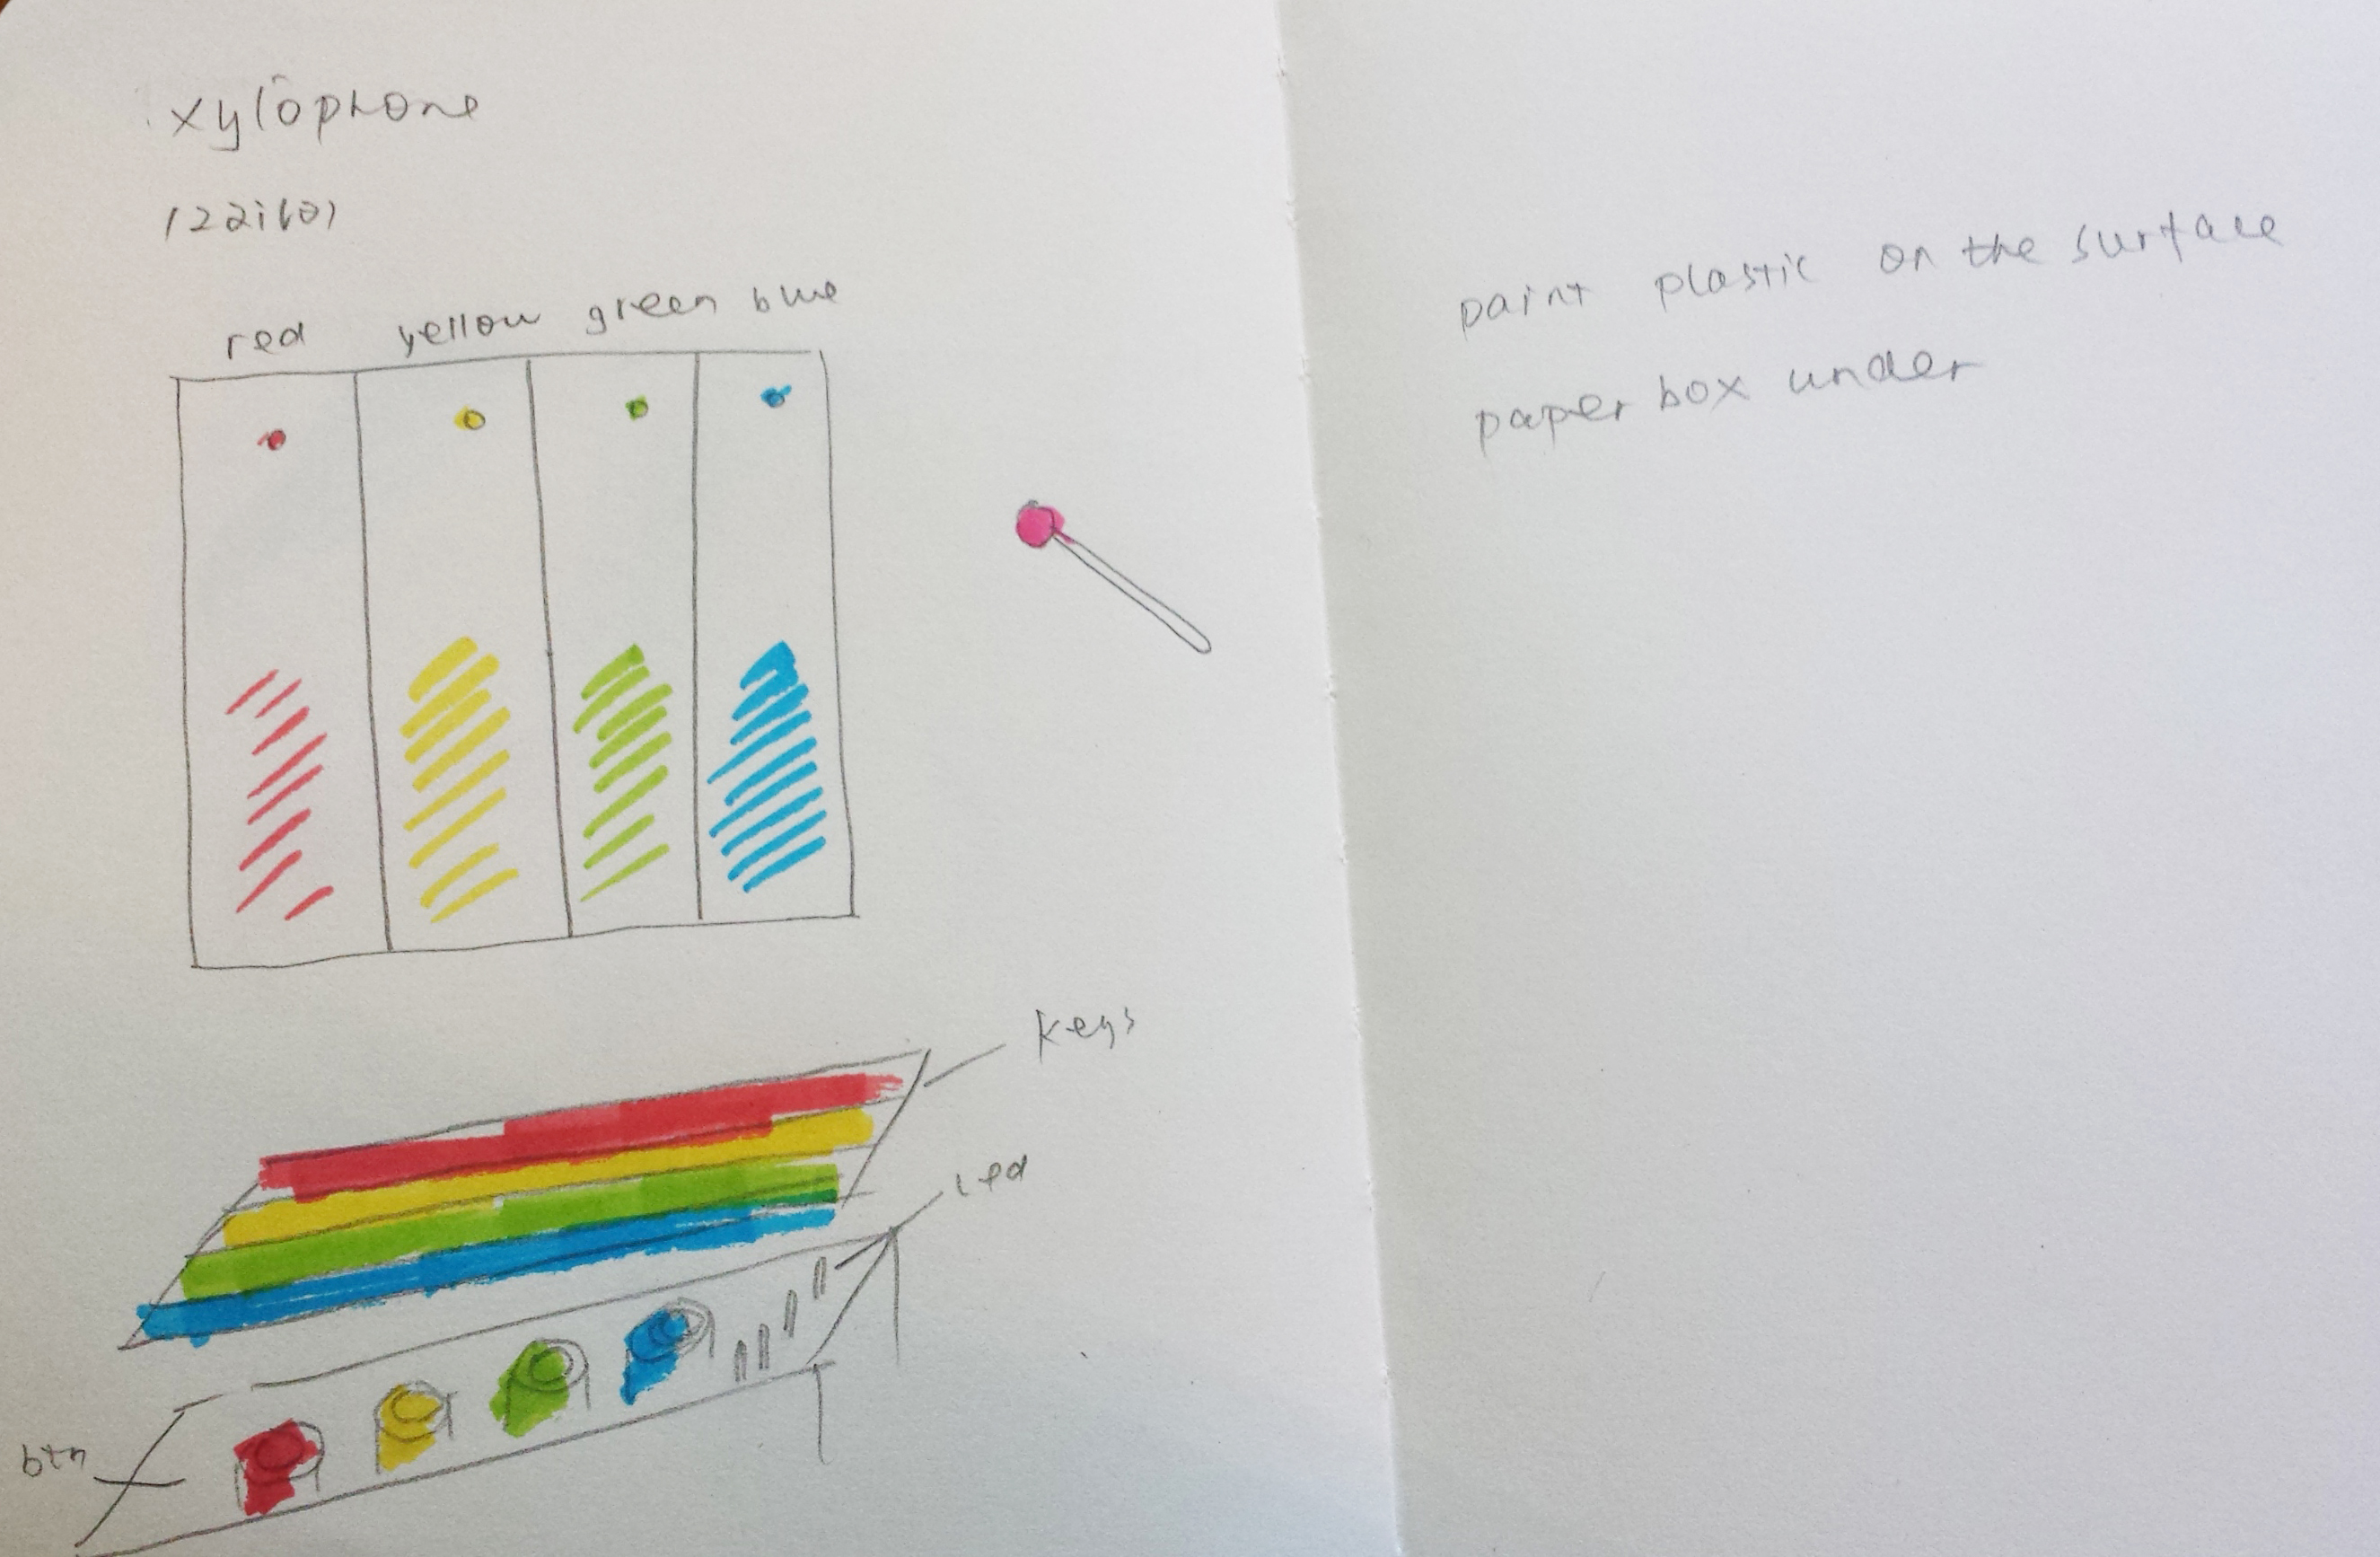 xylophone
red yellow green blue
keys
Led
btn
paint plastic on the surface
paper box under